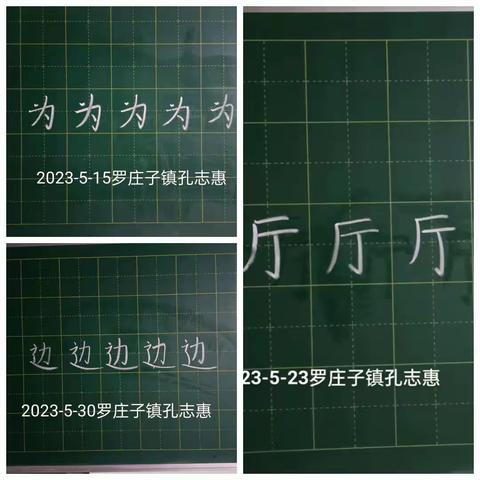 为为为为为
2023-5-15罗庄子镇孔志惠
边边边边边
2023-5-30罗庄子镇孔志惠
厅厅厅
23-5-23罗庄子镇孔志惠